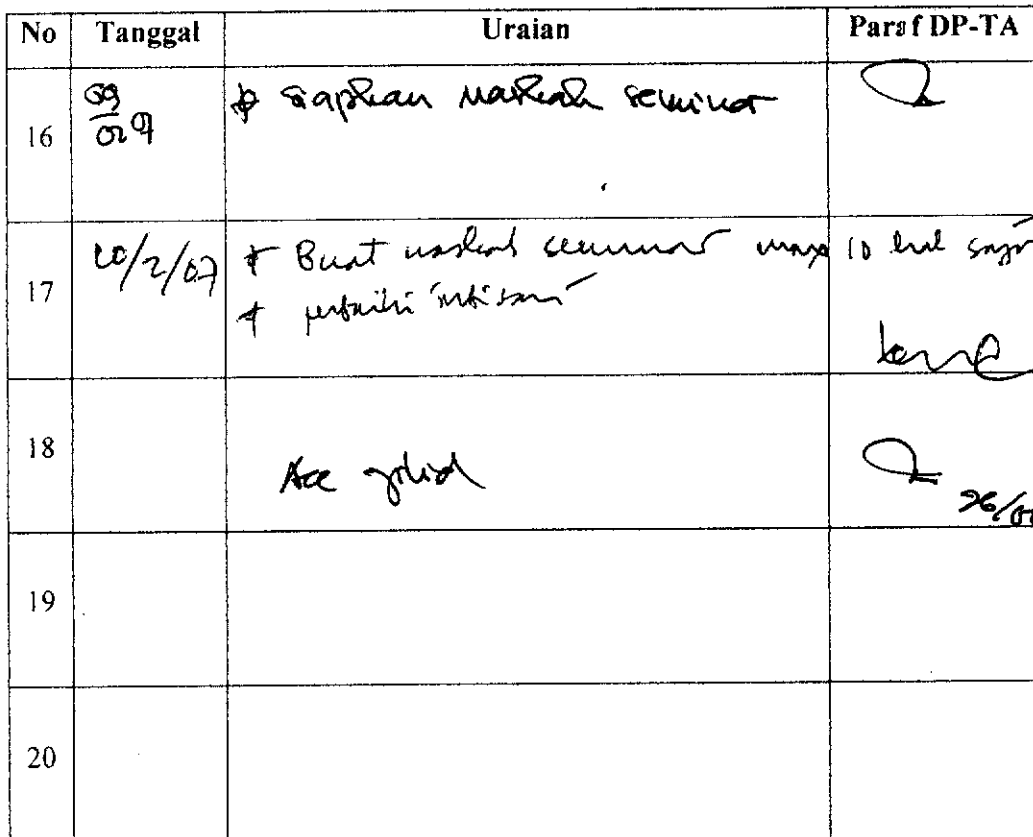 No Tanggal Uraian Paraf DP-TA
16 09/02 07 * Siapkan naskah seminar
17 20/2/07 * Buat naskah seminar max 10 hal saja
* perbaiki intisari
18 Acc jilid
26/0
19
20